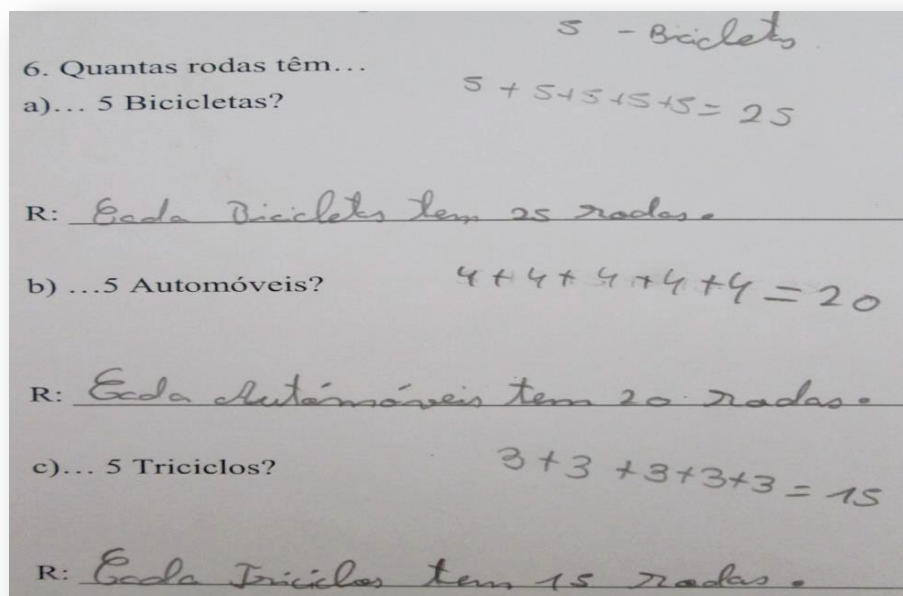 5 - Bicicletas
6. Quantas rodas têm...
a)... 5 Bicicletas?
5 + 5 + 5 + 5 + 5 = 25
R: Cada Bicicletas tem 25 rodas.
b) ...5 Automóveis?
4 + 4 + 4 + 4 + 4 = 20
R: Cada Autómóveis tem 20 rodas.
c)... 5 Triciclos?
3 + 3 + 3 + 3 + 3 = 15
R: Cada Triciclos tem 15 rodas.